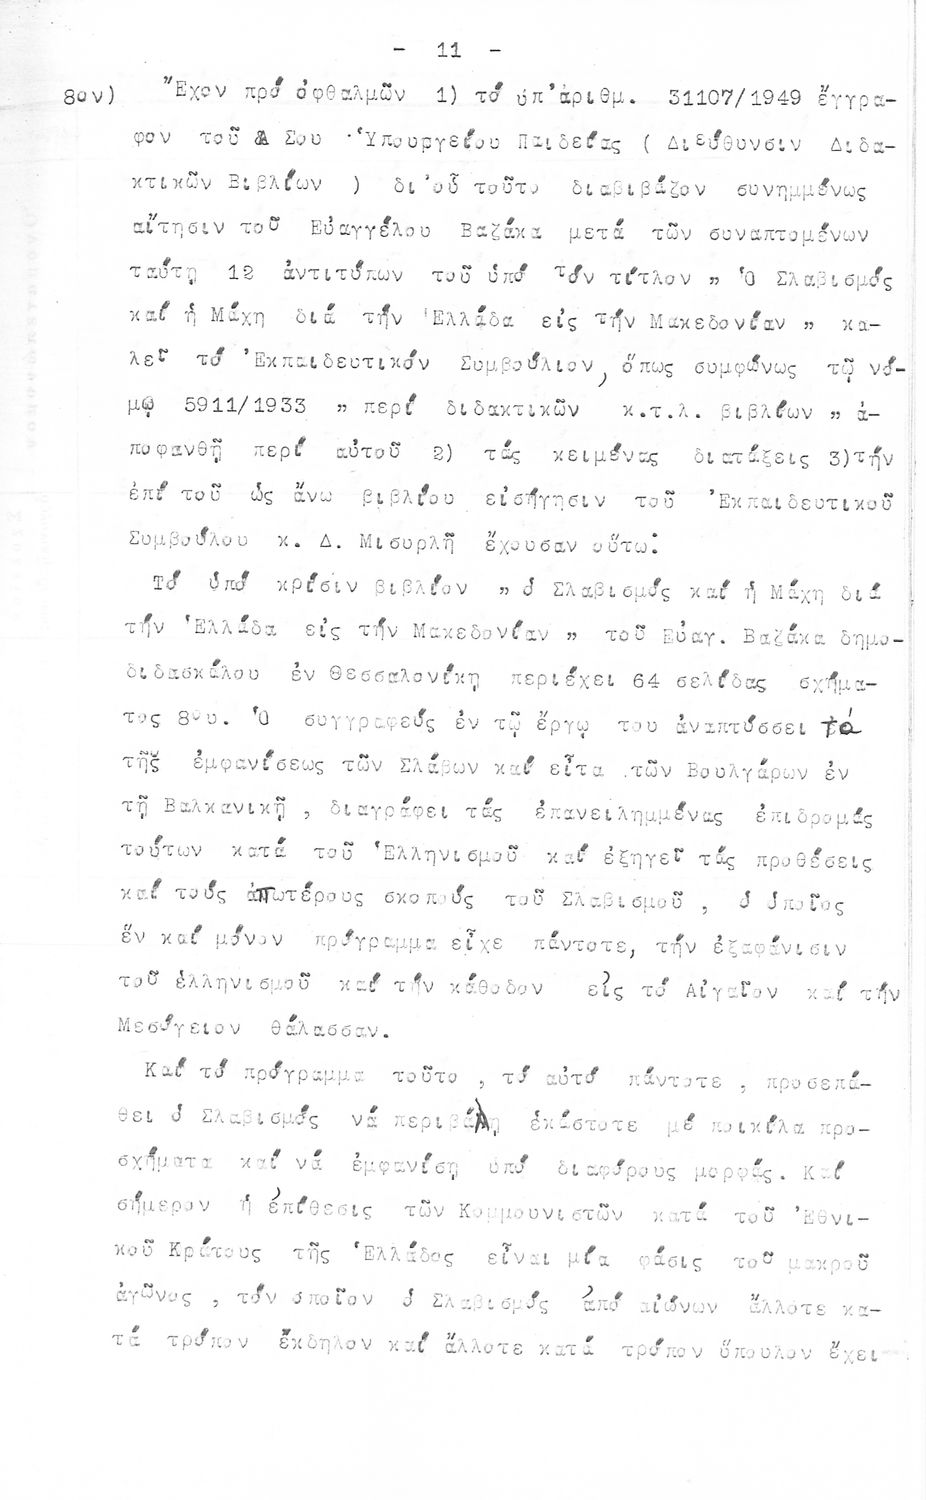 - 11 -
8ον) Ἔχον πρό ὀφθαλμῶν 1) τό ὑπ' ἀριθμ. 31107/1949 ἔγγρα-
φον τοῦ Σου Ὑπουργείου Παιδείας ( Διεύθυνσιν Διδα-
κτικῶν Βιβλίων ) δι'οὗ τοῦτο διαβιβάζον συνημμένως
αἴτησιν τοῦ Εὐαγγέλου Βαζάκα μετά τῶν συναπτομένων
ταύτῃ 12 ἀντιτύπων τοῦ ὑπό τόν τίτλον " Ὁ Σλαβισμός
καί ἡ Μάχη διά τήν Ἑλλάδα εἰς τήν Μακεδονίαν " κα-
λεῖ τό Ἐκπαιδευτικόν Συμβούλιον, ὅπως συμφώνως τῷ νό-
μῳ 5911/1933 " περί διδακτικῶν κ.τ.λ. βιβλίων " ἀ-
ποφανθῇ περί αὐτοῦ 2) τάς κειμένας διατάξεις 3)τήν
ἐπί τοῦ ὡς ἄνω βιβλίου εἰσήγησιν τοῦ Ἐκπαιδευτικοῦ
Συμβούλου κ. Δ. Μισυρλῆ ἔχουσαν οὕτω:
Τό ὑπό κρίσιν βιβλίον " ὁ Σλαβισμός καί ἡ Μάχη διά
τήν Ἑλλάδα εἰς τήν Μακεδονίαν " τοῦ Εὐαγ. Βαζάκα δημο-
διδασκάλου ἐν Θεσσαλονίκῃ περιέχει 64 σελίδας σχήμα-
τος 8ου. Ὁ συγγραφεύς ἐν τῷ ἔργῳ του ἀναπτύσσει τά
τῆς ἐμφανίσεως τῶν Σλάβων καί εἶτα τῶν Βουλγάρων ἐν
τῇ Βαλκανικῇ , διαγράφει τάς ἐπανειλημμένας ἐπιδρομάς
τούτων κατά τοῦ Ἑλληνισμοῦ καί ἐξηγεῖ τάς προθέσεις
καί τούς ἀπωτέρους σκοπούς τοῦ Σλαβισμοῦ , ὁ ὁποῖος
ἕν καί μόνον πρόγραμμα εἶχε πάντοτε, τήν ἐξαφάνισιν
τοῦ ἑλληνισμοῦ καί τήν κάθοδον εἰς τό Αἰγαῖον καί τήν
Μεσόγειον θάλασσαν.
Καί τό πρόγραμμα τοῦτο , τό αὐτό πάντοτε , προσεπά-
θει ὁ Σλαβισμός νά περιβάλῃ ἑκάστοτε μέ ποικίλα προ-
σχήματα καί νά ἐμφανίσῃ ὑπό διαφόρους μορφάς. Καί
σήμερον ἡ ἐπίθεσις τῶν Κομμουνιστῶν κατά τοῦ Ἐθνι-
κοῦ Κράτους τῆς Ἑλλάδος εἶναι μία φάσις τοῦ μακροῦ
ἀγῶνος , τόν ὁποῖον ὁ Σλαβισμός ἀπό αἰώνων ἄλλοτε κα-
τά τρόπον ἔκδηλον καί ἄλλοτε κατά τρόπον ὕπουλον ἔχει